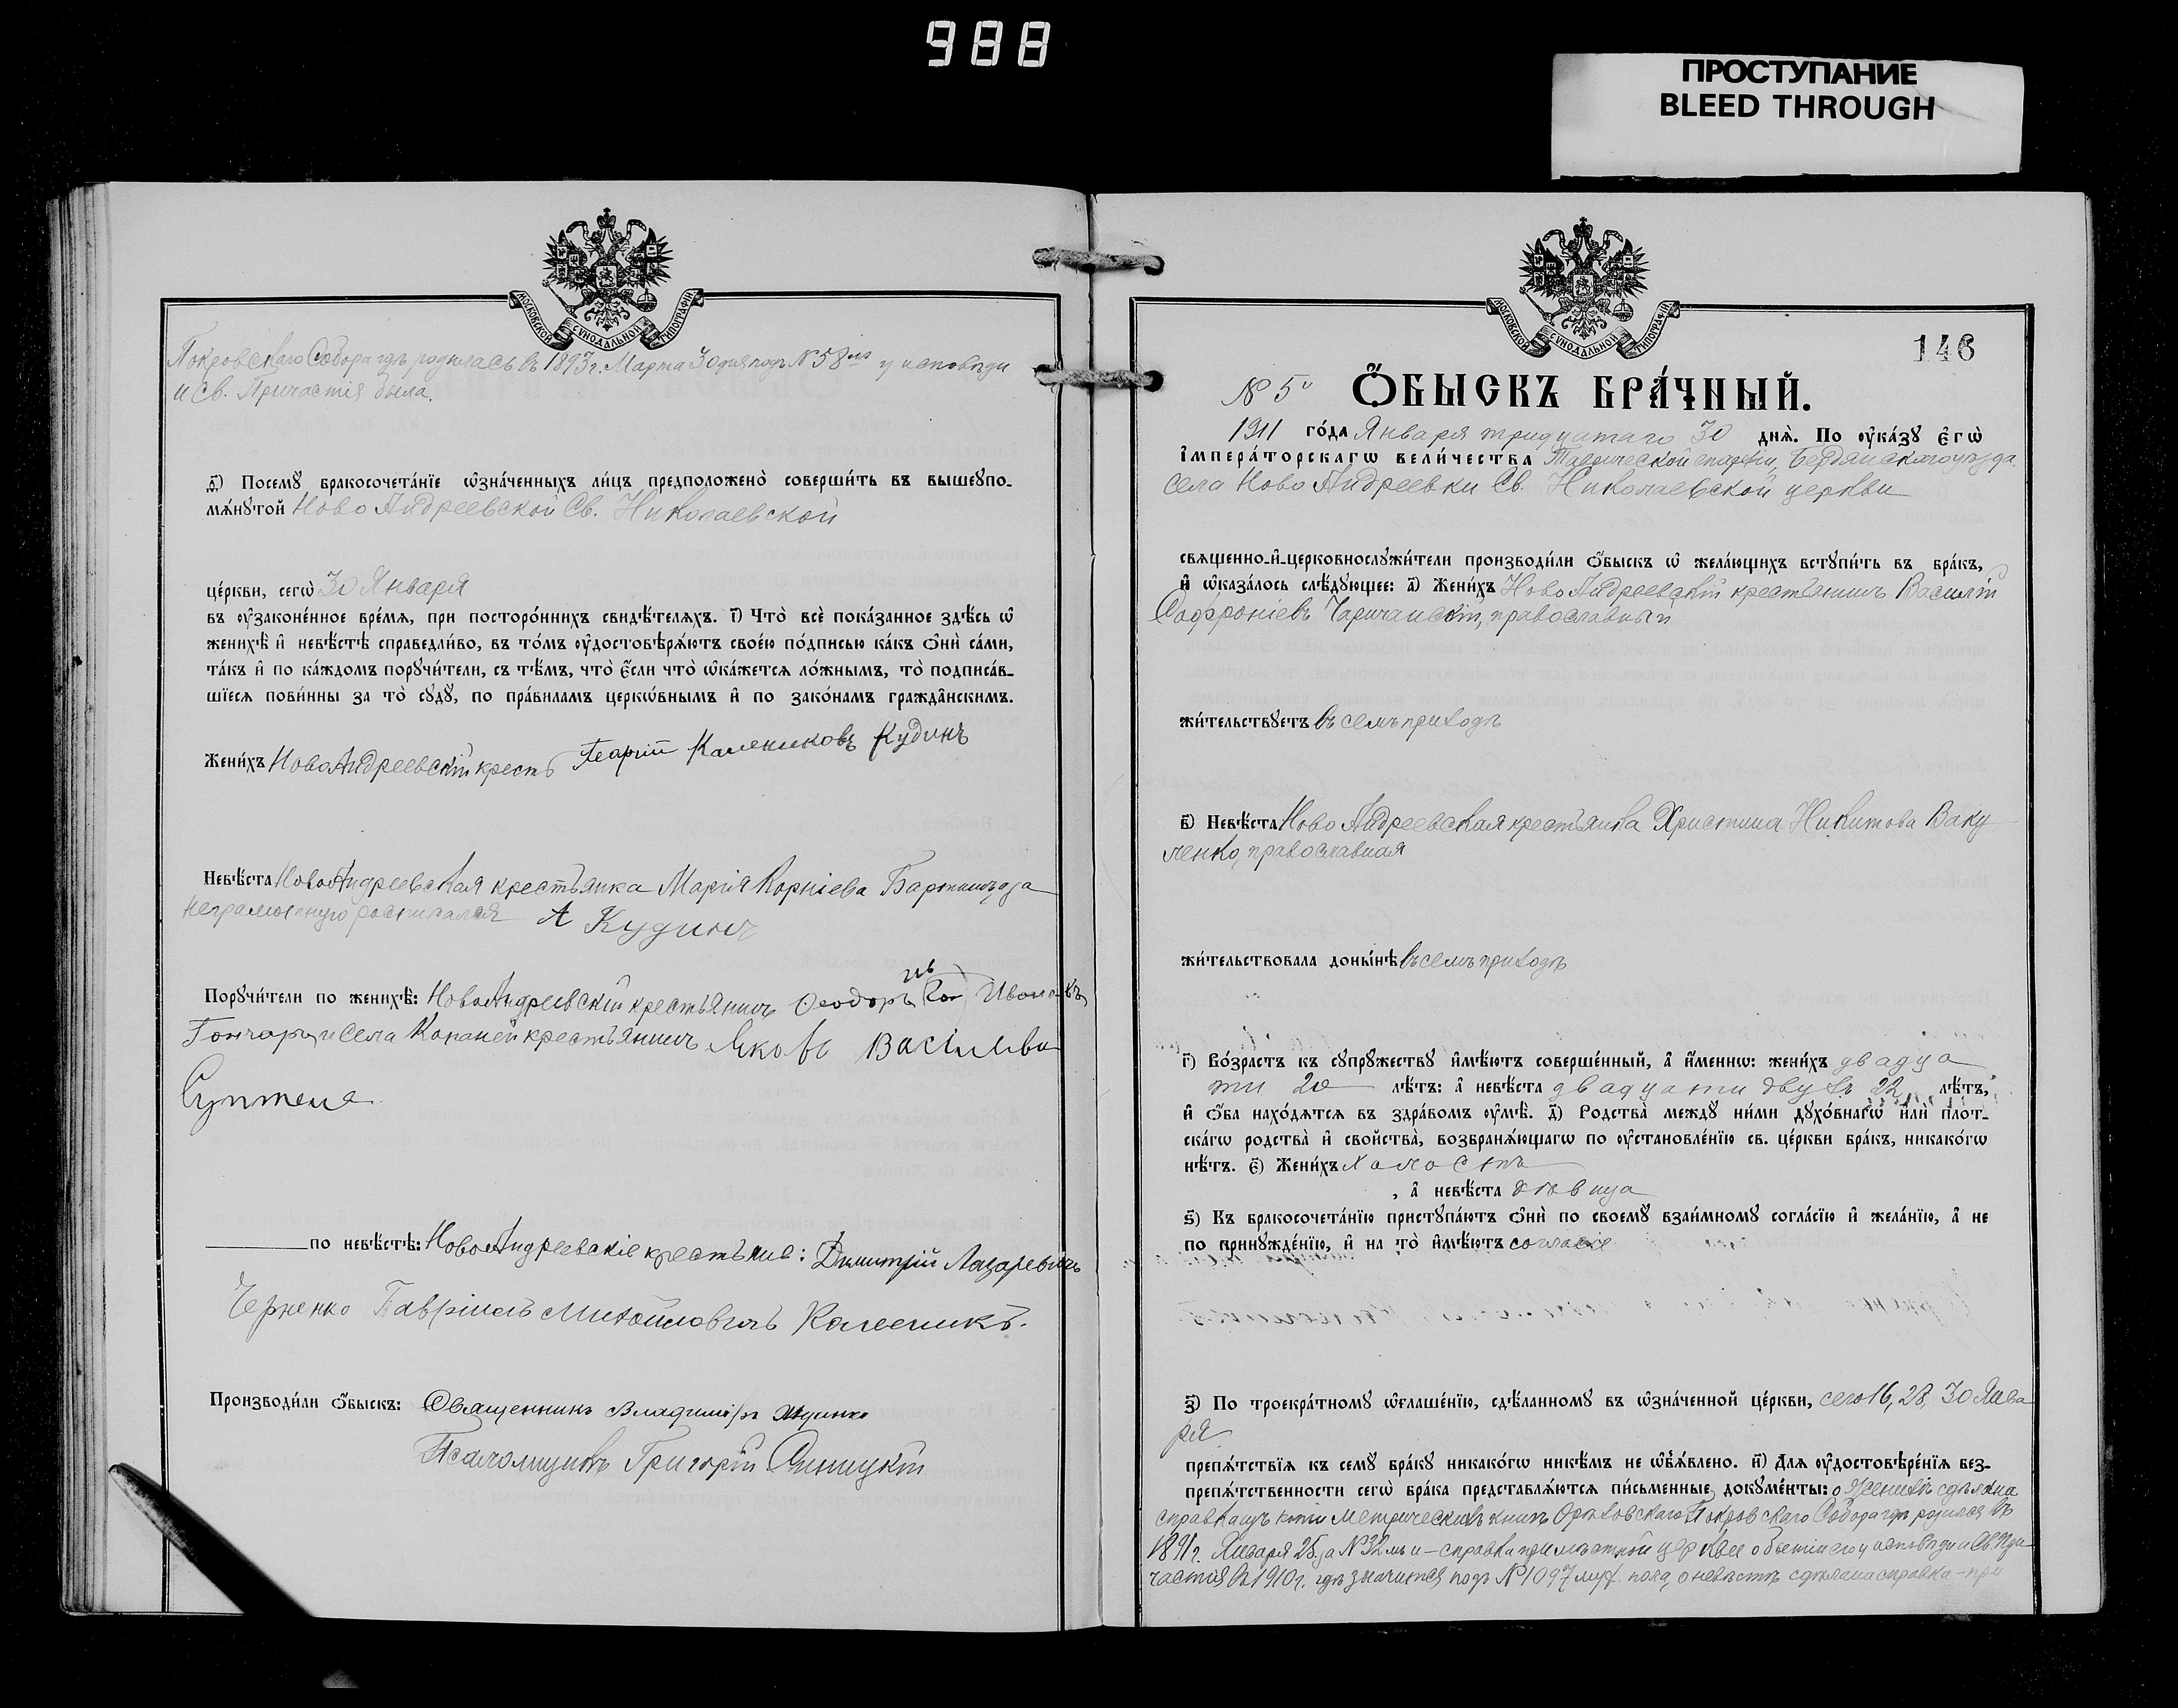 988
ПРОСТУПАНИЕ
BLEED THROUGH
МОСКОВСКОЙ СѴНОДАЛЬНОЙ ТИПОГРАФІИ
Покровскаго Собора гдѣ родилась въ 1893 г. Марта 30 дня подъ № 58 мъ у исповѣди
и Св. Причастія была.
д҃) Посемꙋ̀ бракосочета́нїе ѡ҆зна́ченныхъ ли́цъ предположено̀ соверши́ть въ вышеꙋпо-
мѧ́нꙋтой Ново Андреевской Св. Николаевской
це́ркви, сегѡ̀ 30 Января
въ ᲂу҆законе́нное вре́мѧ, при посторо́ннихъ свидѣ́телѧхъ. і҃) Что̀ всѐ пока́занное здѣ́сь ѡ҆
женихѣ̀ и҆ невѣ́стѣ справедли́во, въ то́мъ ᲂу҆достовѣрѧ́ютъ свое́ю по́дписью ка́къ ѻ҆нѝ са́ми,
та́къ и҆ по ка́ждомъ порꙋчи́тели, съ тѣ́мъ, что̀ є҆́сли что̀ ѡ҆ка́жетсѧ ло́жнымъ, то̀ подписа́в-
шїесѧ пови́нны за то̀ сꙋдꙋ̀, по пра́виламъ церкѡ́внымъ и҆ по зако́намъ гражда̑нскимъ.
Жени́хъ Ново Андреевскій крест Георгій Калениковъ Кудинъ
Невѣ́ста Ново Андреевская крестьянка Марія Корніева
неграмотную росписался А Кудинъ
Порꙋчи́тели по женихѣ̀: Ново Андреевскій крестьянинъ Ѳеодоръ Ивановъ
Гончаръ, и села Копаней крестьянинъ Яковъ Васильевъ
по невѣ́стѣ: Ново Андреевскіе крестьяне: Димитрій Лазаревичъ
Черненко Гавріилъ Михайловичъ Колесникъ.
Производи́ли ѻ҆́быскъ: Священникъ Владиміръ
Псаломщикъ Григорій Синицкій
МОСКОВСКОЙ СѴНОДАЛЬНОЙ ТИПОГРАФІИ
146
№ 5й Ѻ҆́БЫСКЪ БРА́ЧНЫЙ.
1911 го́да Января тридцатаго 30 днѧ̀. По ᲂу҆ка́зꙋ є҆гѡ̀
і҆мпера́торскагѡ вели́чества Таврической епархіи, Бердянскаго уѣзда,
села Ново Андреевки Св. Николаевской церкви
свѧщенно-и҆-церковнослꙋжи́тели производи́ли ѻ҆́быскъ ѡ҆ жела́ющихъ встꙋпи́ть въ бра́къ,
и҆ ѡ҆каза́лось слѣ́дꙋющее: а҃) Жени́хъ Ново Андреевскій крестьянинъ Василій
Софроніевъ Чаричанскій, православный
жи́тельствꙋетъ въ семъ приходѣ
в҃) Невѣ́ста Ново Андреевская крестьянка Христина НикитоваВаку
ленко, православная
жи́тельствовала доны́нѣ въ семъ приходѣ
г҃) Во́зрастъ къ сꙋпрꙋ́жествꙋ и҆мѣ́ютъ соверше́нный, а҆ и҆́меннѡ: жени́хъ двадца
ти 20 лѣ́тъ: а҆ невѣ́ста двадцати двухъ 22 лѣ́тъ,
и҆ ѻ҆́ба нахо́дѧтсѧ въ здра́вомъ ᲂу҆мѣ̀. д҃) Родства̀ междꙋ ни́ми дꙋхо́внагѡ и҆лѝ плот-
ска́гѡ родства̀ и҆ сво́йства̀, возбранѧ́ющагѡ по ᲂу҆становле́нїю св. це́ркви бра́къ, никако́гѡ
нѣ́тъ. є҃) Жени́хъ холостъ
, а҆ невѣ́ста дѣвица
ѕ҃) Къ бракосочета́нїю пристꙋпа́ютъ ѻ҆нѝ по своемꙋ̀ взаи́мномꙋ согла́сїю и҆ жела́нїю, а҆ не
по принꙋжде́нїю, и҆ на то̀ и҆мѣ́ютъ согласіе
з҃) По троекра́тномꙋ ѡ҆глаше́нїю, сдѣ́ланномꙋ въ ѡ҆зна́ченной це́ркви, сего 16, 28, 30 Янва
ря
препѧ́тствїѧ къ семꙋ̀ бра́кꙋ никако́гѡ никѣ́мъ не ѡ҆б̾ѧ́влено. и҃) Длѧ ᲂу҆достовѣре́нїѧ без-
препѧ́тственности сегѡ̀ бра́ка представлѧ́ютсѧ пи́сьменные докꙋме́нты: о Женихѣ сдѣлана
справка изъ копіи Метрическихъ книгъ Орѣховскаго Покровскаго Собора гдѣ родился въ
1891 г. Января 25 за № 32 мъ и - справка при мѣстной церкви о бытіи его у исповѣди и Св. При
частія въ 1910 г. гдѣ значится подъ № 1097 муж. пола, о невѣстѣ сдѣлана справка - при